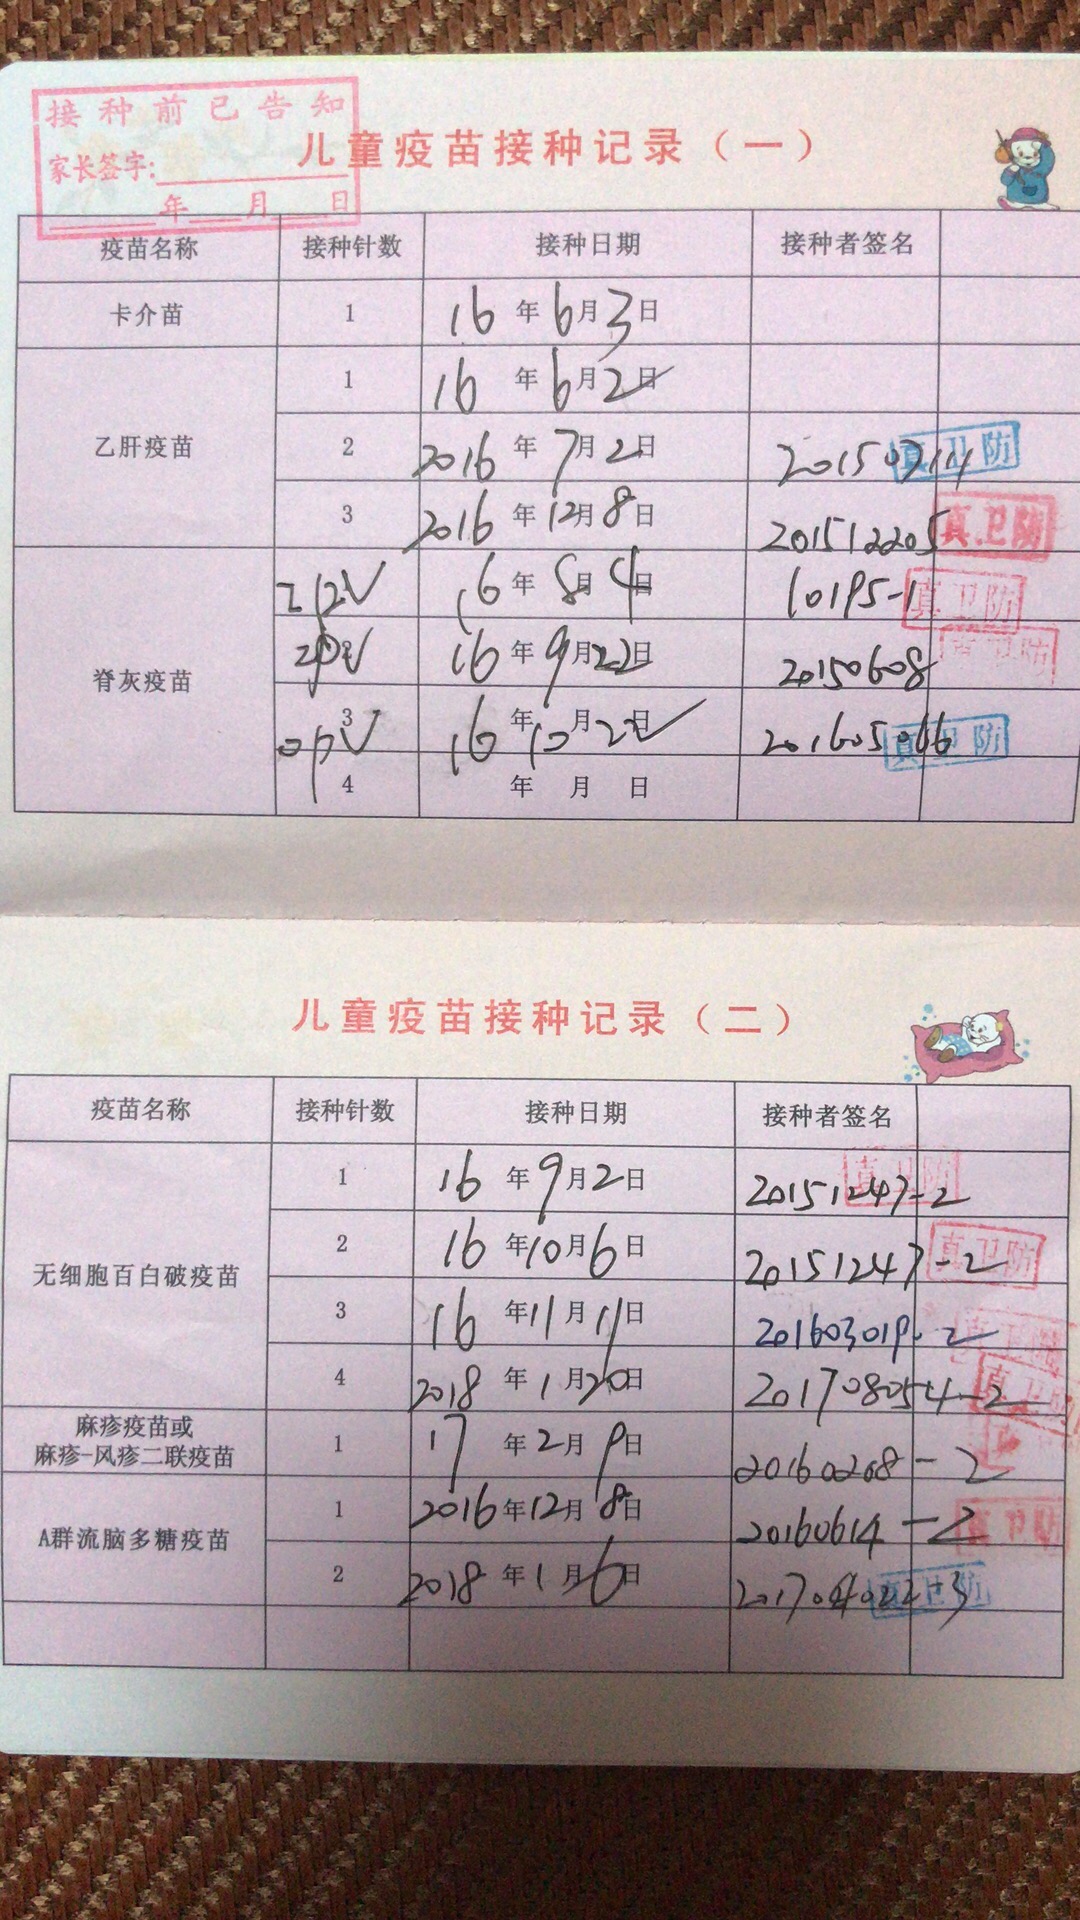 接种前已告知
家长签字:
年 月 日
儿童疫苗接种记录（一）
疫苗名称 接种针数 接种日期 接种者签名
卡介苗 1 16年6月3日
乙肝疫苗 1 16年6月2日
2 2016年7月2日 真卫防
3 2016年12月8日 201512205 真卫防
脊灰疫苗 IPV 16年8月4日 10195-1 真卫防
16年9月22日 20150608 真卫防
3 OPV 16年10月22日 201605066 真卫防
4 年 月 日
儿童疫苗接种记录（二）
疫苗名称 接种针数 接种日期 接种者签名
无细胞百白破疫苗 1 16年9月2日 20151247-2 真卫防
2 16年10月6日 20151247-2 真卫防
3 16年11月11日 201603019-2 真卫防
4 2018年1月20日 201708054-2 真卫防
麻疹疫苗或
麻疹-风疹二联疫苗 1 17年2月9日 20160268-2
A群流脑多糖疫苗 1 2016年12月8日 20160614-2 真卫防
2 2018年1月6日 真卫防